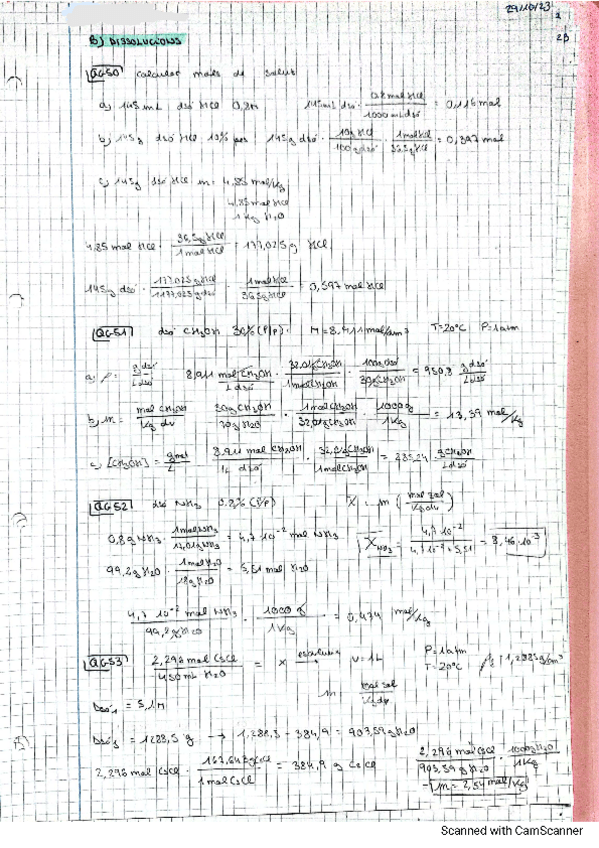 29/10/23
B) DISSOLUCIONS
QG50 calcular mols de solut
a) 145mL dsó HCl 0,8M 145mL dsó · 0,8 mol HCl / 1000 mL dsó = 0,116 mol
b) 145g dsó HCl 10% pes 145g dsó · 10g HCl / 100g dsó · 1mol HCl / 36,5g HCl = 0,397 mol
c) 145g dsó HCl m = 4,85 mol/kg
4,85 mol HCl
1 kg H2O
4,85 mol HCl · 36,5g HCl / 1mol HCl = 177,025 g HCl
145g dsó · 177,025 g HCl / 1177,025 g dsó · 1mol HCl / 36,5g HCl = 0,597 mol HCl
QG51 dsó CH3OH 30% (P/P) M = 8,911 mol/dm³ T=20°C P=1atm
a) ρ = g dsó / L dsó 8,911 mol CH3OH / L dsó · 32,01g CH3OH / 1mol CH3OH · 100g dsó / 30g CH3OH = 950,8 g dsó / L dsó
b) m = mol CH3OH / kg dv 30g CH3OH / 70g H2O · 1mol CH3OH / 32,01g CH3OH · 1000g / 1kg = 13,39 mol/kg
c) [CH3OH] = / L 8,911 mol CH3OH / 1L dsó · 32,01g CH3OH / 1mol CH3OH = 285,24 g CH3OH / L dsó
QG52 dsó NH3 0.8% (P/P) X m ( mol sol / kg dv )
0,8g NH3 · 1mol NH3 / 17,01g NH3 = 4,7·10⁻² mol NH3 X NH3 = 4,7·10⁻² / 4,7·10⁻² + 5,51 = 8,46·10⁻³
99,2g H2O · 1mol H2O / 18g H2O = 5,51 mol H2O
4,7·10⁻² mol NH3 / 99,2g H2O · 1000g / 1kg = 0,474 mol/kg
QG53 2,296 mol CsCl / 450 mL H2O = x V=1L P=1atm T=20°C ρ: 1,2885g/cm³
m mol sol / kg dv
Dsó1 = 5,1M
Dsó1 = 1288,5 g → 1,288,5 - 384,9 = 903,59g H2O
2,296 mol CsCl · / 1mol CsCl = 384,9 g CsCl 2,296 mol CsCl / 903,59 g H2O · 1000g H2O / 1kg
m = 2,54 mol/kg
Scanned with CamScanner